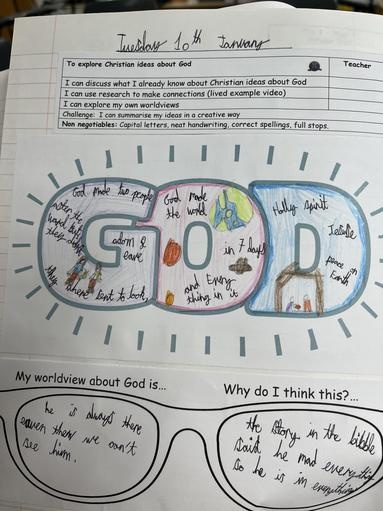 Tuesday 10th January
To explore Christian ideas about God
Teacher
I can discuss what I already know about Christian ideas about God
I can use research to make connections (lived example video)
I can explore my own worldviews
Challenge: I can summarise my ideas in a creative way
Non negotiables: Capital letters, neat handwriting, correct spellings, full stops.
GOD
God made two people
adom &
eave
they where sent to look
God made
the world
in 7 days
and Every
thing in it
Holly spirit
peace on
Earth
My worldview about God is...
he is always there
even then we can't
see him.
Why do I think this?...
the story in the bibble
said he mad everything
So he is in everything